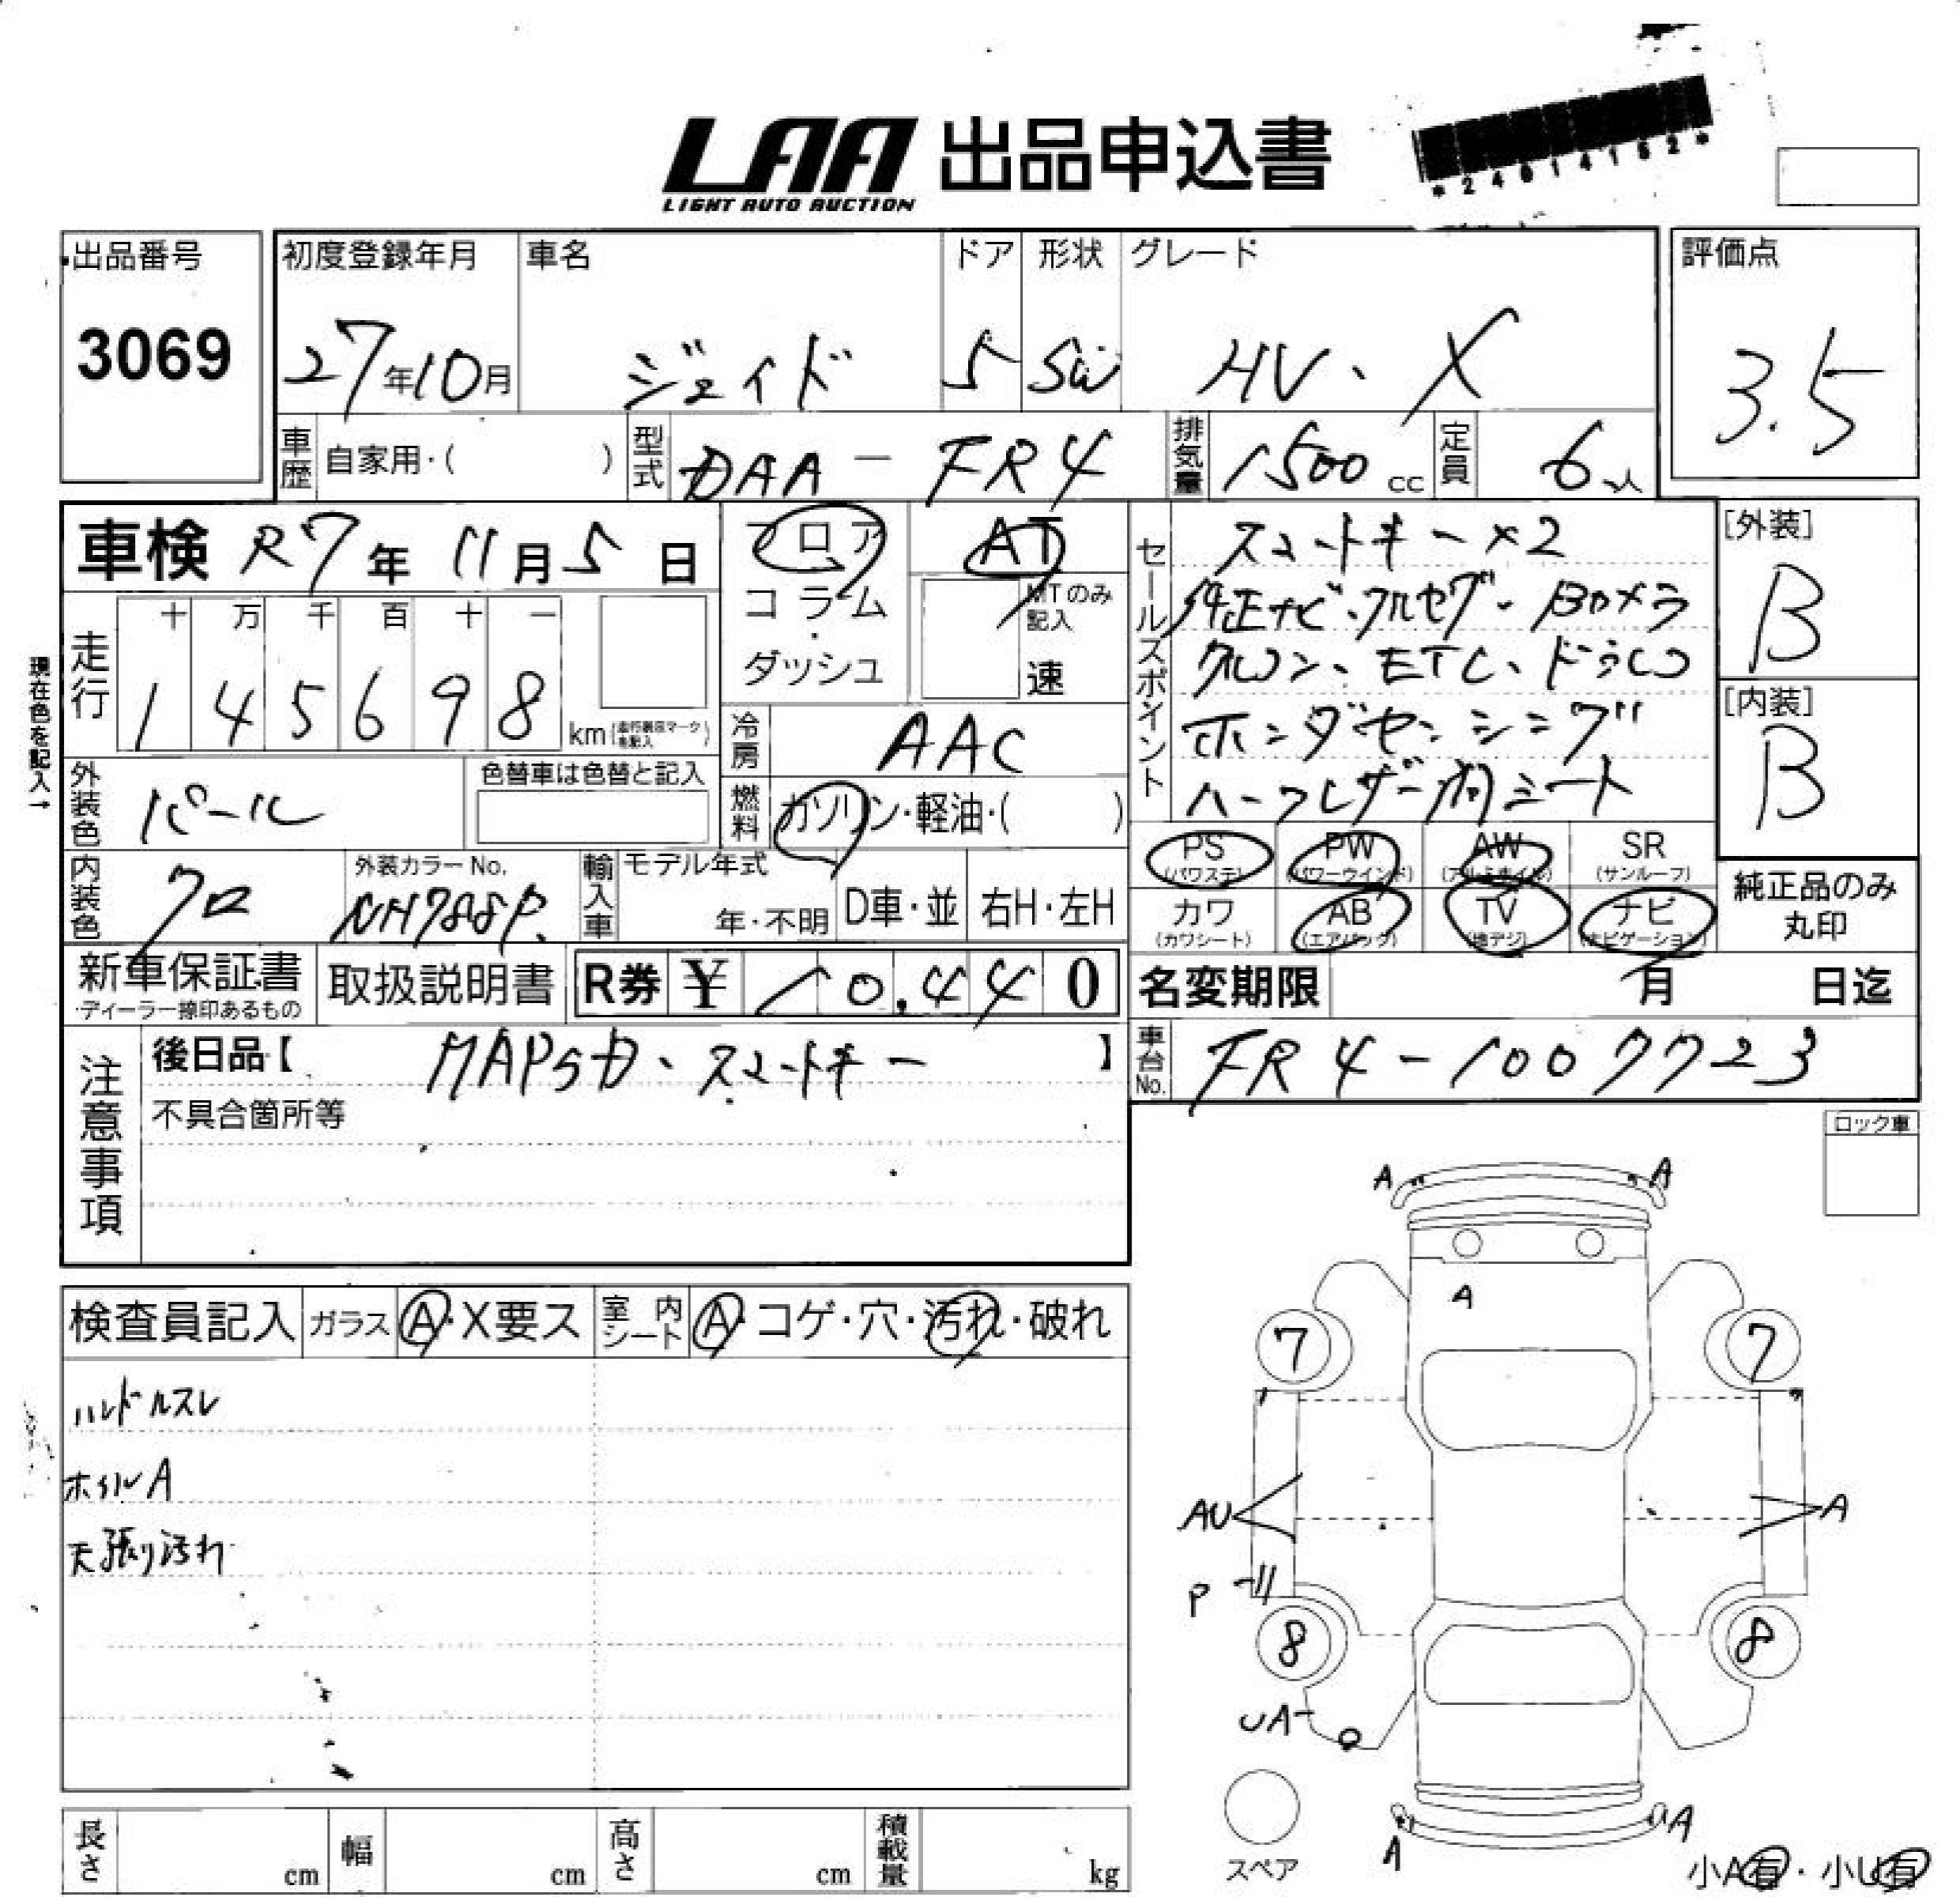 LAA 出品申込書
LIGHT AUTO AUCTION
出品番号
3069
初度登録年月
27年10月
車名
ジェイド
ドア
5
形状
SW
グレード
HV、X
評価点
3.5
車歴 自家用・( )
型式 DAA-FR4
排気量 1500cc
定員 6人
車検 R7年11月5日
フロア
コラム
・
ダッシュ
AT
MTのみ記入
速
セールスポイント
スマートキー×2
純正ナビ・フルセグ・Bカメラ
クルコン、ETC、ドラレコ
ホンダセンシング
ハーフレザー調シート
[外装]
B
[内装]
B
現在色を記入→
走行
十 万 千 百 十 一
1 4 5 6 9 8 km
冷房 AAC
燃料 ガソリン・軽油・( )
外装色 パール
色替車は色替と記入
内装色 クロ
外装カラーNo.
NH788P
輸入車
モデル年式
年・不明
D車・並
右H・左H
PS (パワステ)
PW (パワーウインド)
AW (アルミホイル)
SR (サンルーフ)
カワ (カワシート)
AB (エアバック)
TV (地デジ)
ナビ (ナビゲーション)
純正品のみ丸印
新車保証書
取扱説明書
R券 ¥ 10,440
名変期限 月 日迄
車台No. FR4-1007723
注意事項
後日品【 スマートキー 】
不具合箇所等
ロック車
検査員記入
ガラス A・X要ス
室内シート A・コゲ・穴・汚れ・破れ
ハンドルスレ
ホイルA
天張り汚れ
A A
A
7 7
AU A
P
8 8
UA
A A
スペア
小A有・小U有
長さ cm
幅 cm
高さ cm
積載量 kg